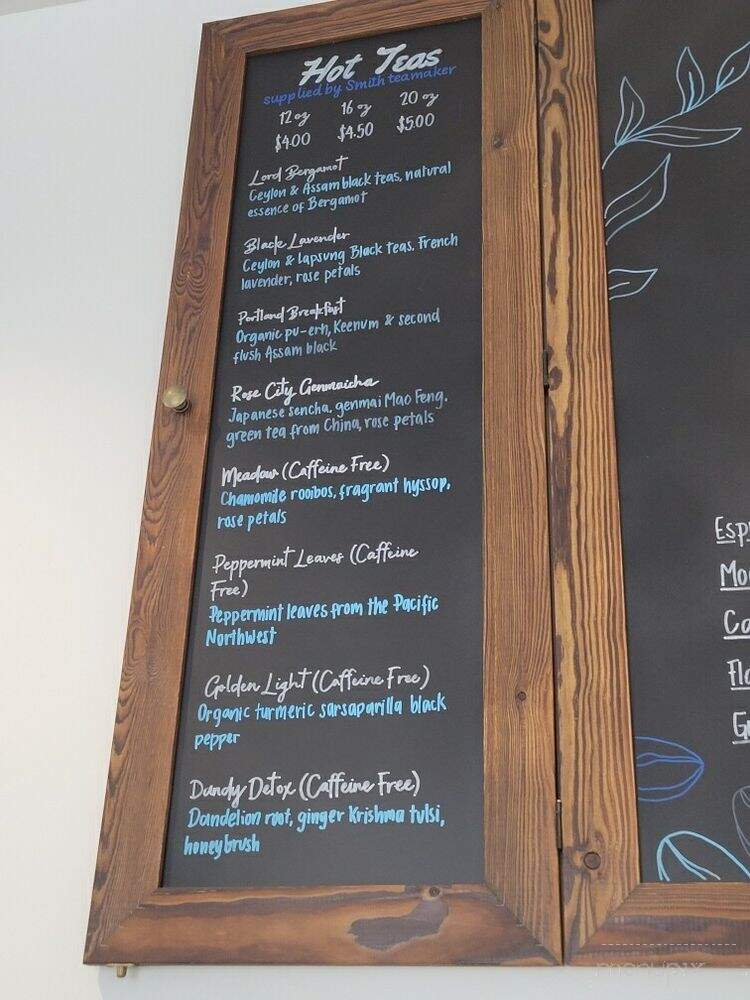 Hot Teas
supplied by Smith teamaker
12 oz 16 oz 20 oz
$4.00 $4.50 $5.00
Lord Bergamot
Ceylon & Assam black teas, natural
essence of Bergamot
Black Lavender
Ceylon & Lapsung Black teas. French
lavender, rose petals
Portland Breakfast
Organic pu-erh, Keenum & second
flush Assam black
Rose City Genmaicha
Japanese sencha, genmai Mao Feng.
green tea from China, rose petals
Meadow (Caffeine Free)
Chamomile rooibos, fragrant hyssop,
rose petals
Peppermint Leaves (Caffeine
Free)
Peppermint leaves from the Pacific
Northwest
Golden Light (Caffeine Free)
Organic turmeric sarsaparilla black
pepper
Dandy Detox (Caffeine Free)
Dandelion root, ginger Krishna tulsi,
honeybrush
Esp
Mo
Ca
Fla
menupix